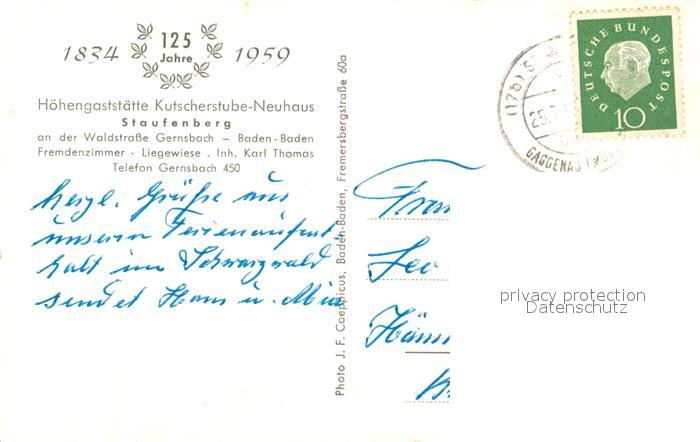 1834 125 Jahre 1959
Höhengaststätte Kutscherstube-Neuhaus
Staufenberg
an der Waldstraße Gernsbach – Baden-Baden
Fremdenzimmer · Liegewiese . Inh. Karl Thomas
Telefon Gernsbach 450
herzl. Grüße aus
unserem Ferienaufent
halt im Schwarzwald
sendet Hans u. Mia
Photo J. F. Coeppicus, Baden-Baden, Fremersbergstraße 60a
DEUTSCHE BUNDESPOST
10
(17b)
25.7
GAGGENAU
Leo
privacy protection
Datenschutz